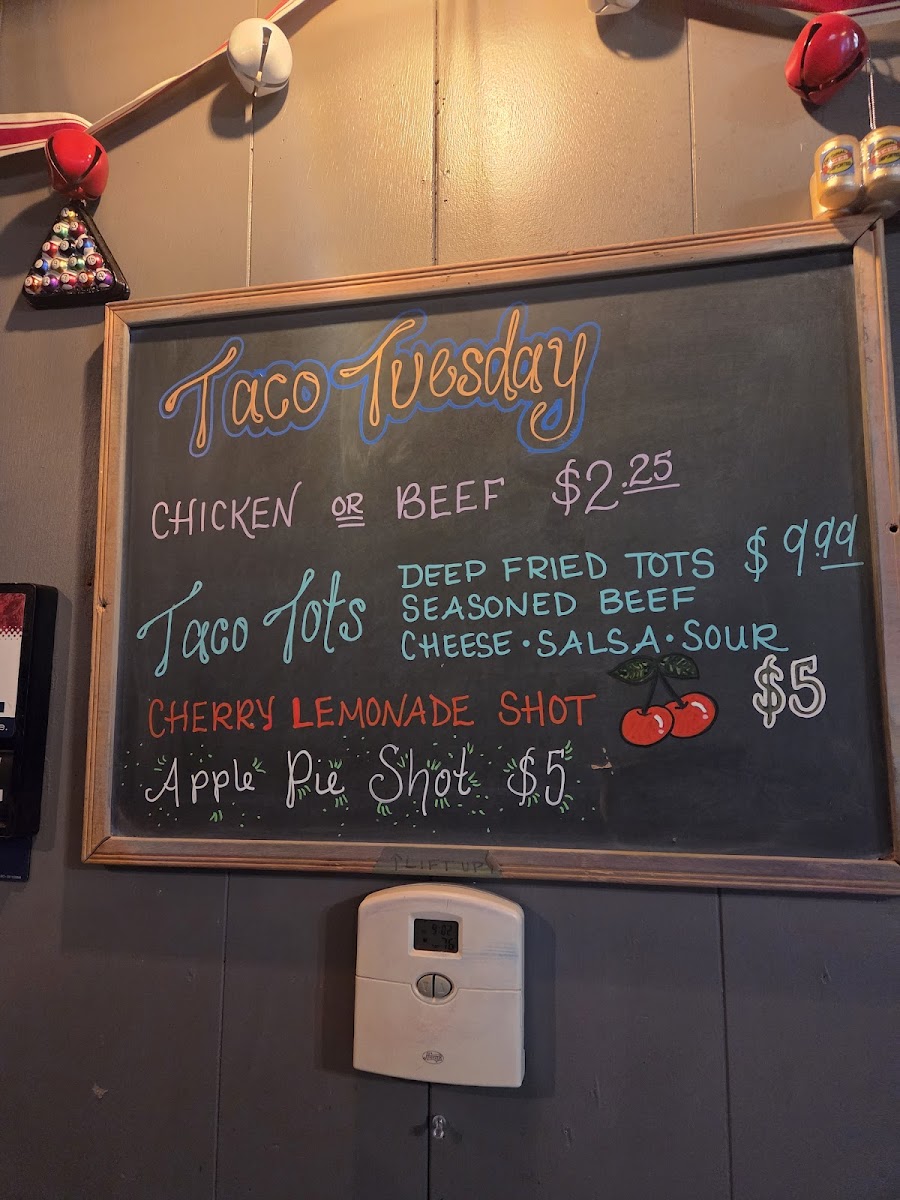 Taco Tuesday
CHICKEN OR BEEF $2.25
Taco Tots
DEEP FRIED TOTS $9.99
SEASONED BEEF
CHEESE • SALSA • SOUR
CHERRY LEMONADE SHOT $5
Apple Pie Shot $5
LIFT UP